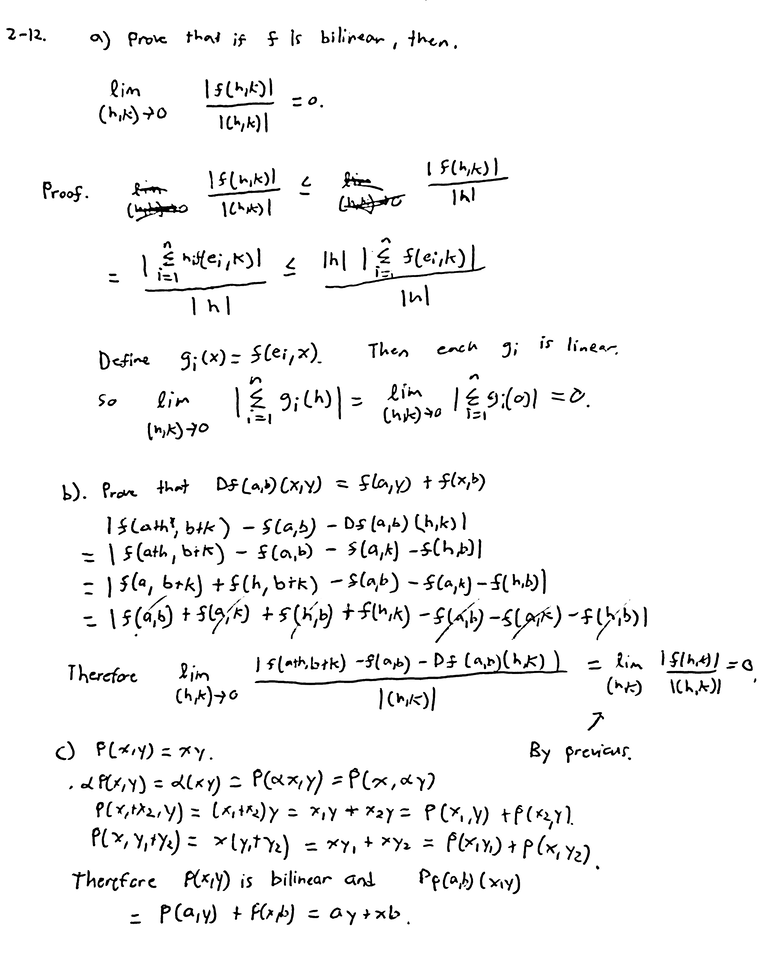 2-12. a) Prove that if f is bilinear, then.
lim_{(h,k)→0} |f(h,k)| / |(h,k)| = 0.
Proof. |f(h,k)| / |(h,k)| ≤ |f(h,k)| / |h|
= |∑_{i=1}^{n} h_i f(e_i,k)| / |h| ≤ |h| |∑_{i=1}^{n} f(e_i,k)| / |h|
Define g_i(x) = f(e_i,x). Then each g_i is linear.
So lim_{(h,k)→0} |∑_{i=1}^{n} g_i(h)| = lim_{(h,k)→0} |∑_{i=1}^{n} g_i(0)| = 0.
b). Prove that Df(a,b)(x,y) = f(a,y) + f(x,b)
|f(a+h, b+k) - f(a,b) - Df(a,b)(h,k)|
= |f(a+h, b+k) - f(a,b) - f(a,k) - f(h,b)|
= |f(a, b+k) + f(h, b+k) - f(a,b) - f(a,k) - f(h,b)|
= |f(a,b) + f(a,k) + f(h,b) + f(h,k) - f(a,b) - f(a,k) - f(h,b)|
Therefore lim_{(h,k)→0} |f(a+h,b+k) - f(a,b) - Df(a,b)(h,k)| / |(h,k)| = lim_{(h,k)} |f(h,k)| / |(h,k)| = 0.
↗
By previous.
c) P(x,y) = xy.
. αP(x,y) = α(xy) = P(αx,y) = P(x,αy)
P(x_1+x_2,y) = (x_1+x_2)y = x_1y + x_2y = P(x_1,y) + P(x_2,y).
P(x, y_1+y_2) = x(y_1+y_2) = xy_1 + xy_2 = P(x,y_1) + P(x,y_2).
Therefore P(x,y) is bilinear and Dp(a,b)(x,y)
= P(a,y) + P(x,b) = ay + xb.